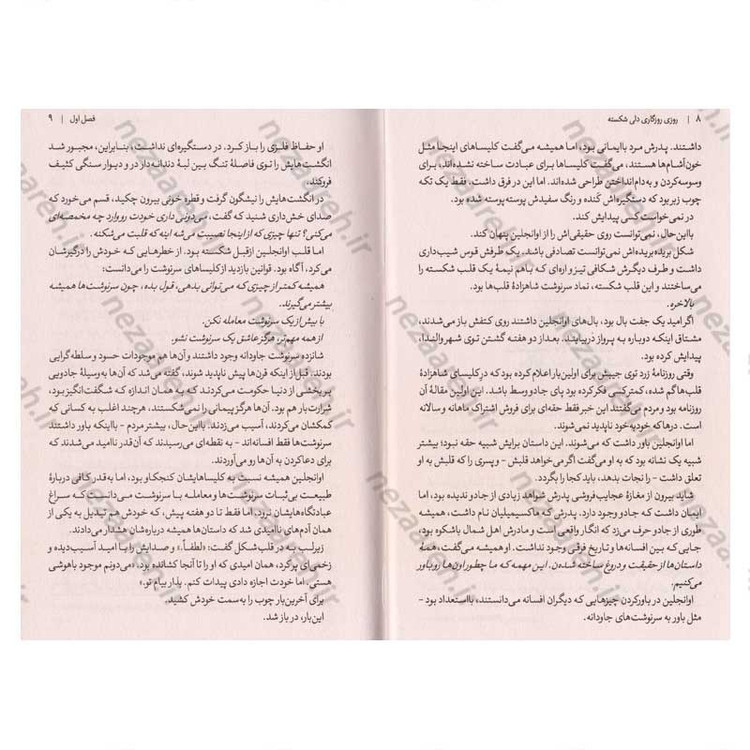 ۸ | روزی روزگاری دلی شکسته
داشتند. پدرش مرد باایمانی بود، اما همیشه می‌گفت کلیساهای اینجا مثل
خون‌آشام‌ها هستند، می‌گفت کلیساها برای عبادت ساخته نشده‌اند، برای
وسوسه‌کردن و به‌دام‌انداختن طراحی شده‌اند. اما این در فرق داشت، فقط یک تکه
چوب زبر بود که دستگیره‌اش کنده و رنگ سفیدش پوسته‌پوسته شده بود.
در نمی‌خواست کسی پیدایش کند.
بااین‌حال، نمی‌توانست روی حقیقی‌اش را از اوانجلین پنهان کند.
شکل بریده‌بریده‌اش نمی‌توانست تصادفی باشد. یک طرفش قوس شیب‌داری
داشت و طرف دیگرش شکافی تیز و اره‌ای که باهم نیمهٔ یک قلب شکسته را
می‌ساختند و این قلب شکسته، نماد سرنوشت شاهزادهٔ قلب‌ها بود.
بالاخره.
اگر امید یک جفت بال بود، بال‌های اوانجلین داشتند روی کتفش باز می‌شدند،
مشتاق اینکه دوباره به پرواز دربیایند. بعد از دو هفته گشتن توی شهر والندا،
پیدایش کرده بود.
وقتی روزنامهٔ زرد توی جیبش برای اولین‌بار اعلام کرده بود که در کلیسای شاهزادهٔ
قلب‌ها گم شده، کمتر کسی فکر کرده بود پای جادو وسط باشد. این اولین مقالهٔ آن
روزنامه بود و مردم می‌گفتند این خبر فقط حقه‌ای برای فروش اشتراک ماهانه و سالانه
است. درها که خودبه‌خود ناپدید نمی‌شوند.
اما اوانجلین باور داشت که می‌شوند. این داستان برایش شبیه حقه نبود؛ بیشتر
شبیه یک نشانه بود که به او می‌گفت اگر می‌خواهد قلبش - و پسری را که قلبش به او
تعلق داشت - را نجات بدهد، باید کجا را بگردد.
شاید بیرون از مغازهٔ عجایب‌فروشی پدرش شواهد زیادی از جادو ندیده بود، اما
ایمان داشت که جادو وجود دارد. پدرش که ماکسیمیلیان نام داشت، همیشه
طوری از جادو حرف می‌زد که انگار واقعی است و مادرش اهل شمال باشکوه بود،
جایی که بین افسانه‌ها و تاریخ فرقی وجود نداشت. او همیشه می‌گفت، همهٔ
داستان‌ها از حقیقت و دروغ ساخته شده‌ن. این مهمه که ما چطور اون‌ها رو باور
می‌کنیم.
اوانجلین در باورکردن چیزهایی که دیگران افسانه می‌دانستند، بااستعداد بود -
مثل باور به سرنوشت‌های جاودانه.
فصل اول | ۹
او حفاظ فلزی را باز کرد. در دستگیره‌ای نداشت، بنابراین، مجبور شد
انگشت‌هایش را توی فاصلهٔ تنگ بین لبهٔ دندانه‌دار در و دیوار سنگی کثیف
فروکند.
در انگشت‌هایش را نیشگون گرفت و قطره خونی بیرون چکید، قسم می‌خورد که
صدای خش‌داری شنید که گفت، می‌دونی داری خودت رو وارد چه مخمصه‌ای
می‌کنی؟ تنها چیزی که از اینجا نصیبت می‌شه اینه که قلبت می‌شکنه.
اما قلب اوانجلین ازقبل شکسته بود. از خطرهایی که خودش را درگیرشان
می‌کرد، آگاه بود. قوانین بازدید از کلیساهای سرنوشت را می‌دانست:
همیشه کمتر از چیزی که می‌توانی بدهی، قول بده، چون سرنوشت‌ها همیشه
بیشتر می‌گیرند.
با بیش از یک سرنوشت معامله نکن.
از همه مهم‌تر، هرگز عاشق یک سرنوشت نشو.
شانزده سرنوشت جاودانه وجود داشتند و آن‌ها هم موجودات حسود و سلطه‌گرایی
بودند. قبل از اینکه قرن‌ها پیش ناپدید شوند، گفته می‌شد که آن‌ها به‌وسیلهٔ جادویی
بر بخشی از دنیا حکومت می‌کردند که به همان اندازه که شگفت‌انگیز بود،
شرارت‌بار هم بود. آن‌ها هرگز پیمانی را نمی‌شکستند، هرچند اغلب به کسانی که
کمکشان می‌کردند، آسیب می‌زدند. بااین‌حال، بیشتر مردم - بااینکه باور داشتند
سرنوشت‌ها فقط افسانه‌اند - به نقطه‌ای می‌رسیدند که آن‌قدر ناامید می‌شدند که
برای دعاکردن به آن‌ها رو می‌آوردند.
اوانجلین همیشه نسبت به کلیساهایشان کنجکاو بود، اما به‌قدر کافی دربارهٔ
طبیعت بی‌ثبات سرنوشت‌ها و معامله با سرنوشت می‌دانست که سراغ
عبادتگاه‌هایشان نرود. اما فقط تا دو هفته پیش، که خودش هم تبدیل به یکی از
همان آدم‌های ناامیدی شد که داستان‌ها همیشه درباره‌شان هشدار می‌دادند.
زیرلب به در قلب‌شکل گفت: «لطفاً.» و صدایش را با امید آسیب‌دیده و
زخمی‌ای پر کرد، همان امیدی که او را تا آنجا کشانده بود، «می‌دونم موجود باهوشی
هستی. اما خودت اجازه دادی پیدات کنم. بذار بیام تو.»
برای آخرین‌بار چوب را به‌سمت خودش کشید.
این‌بار، در باز شد.
nezaareh.ir